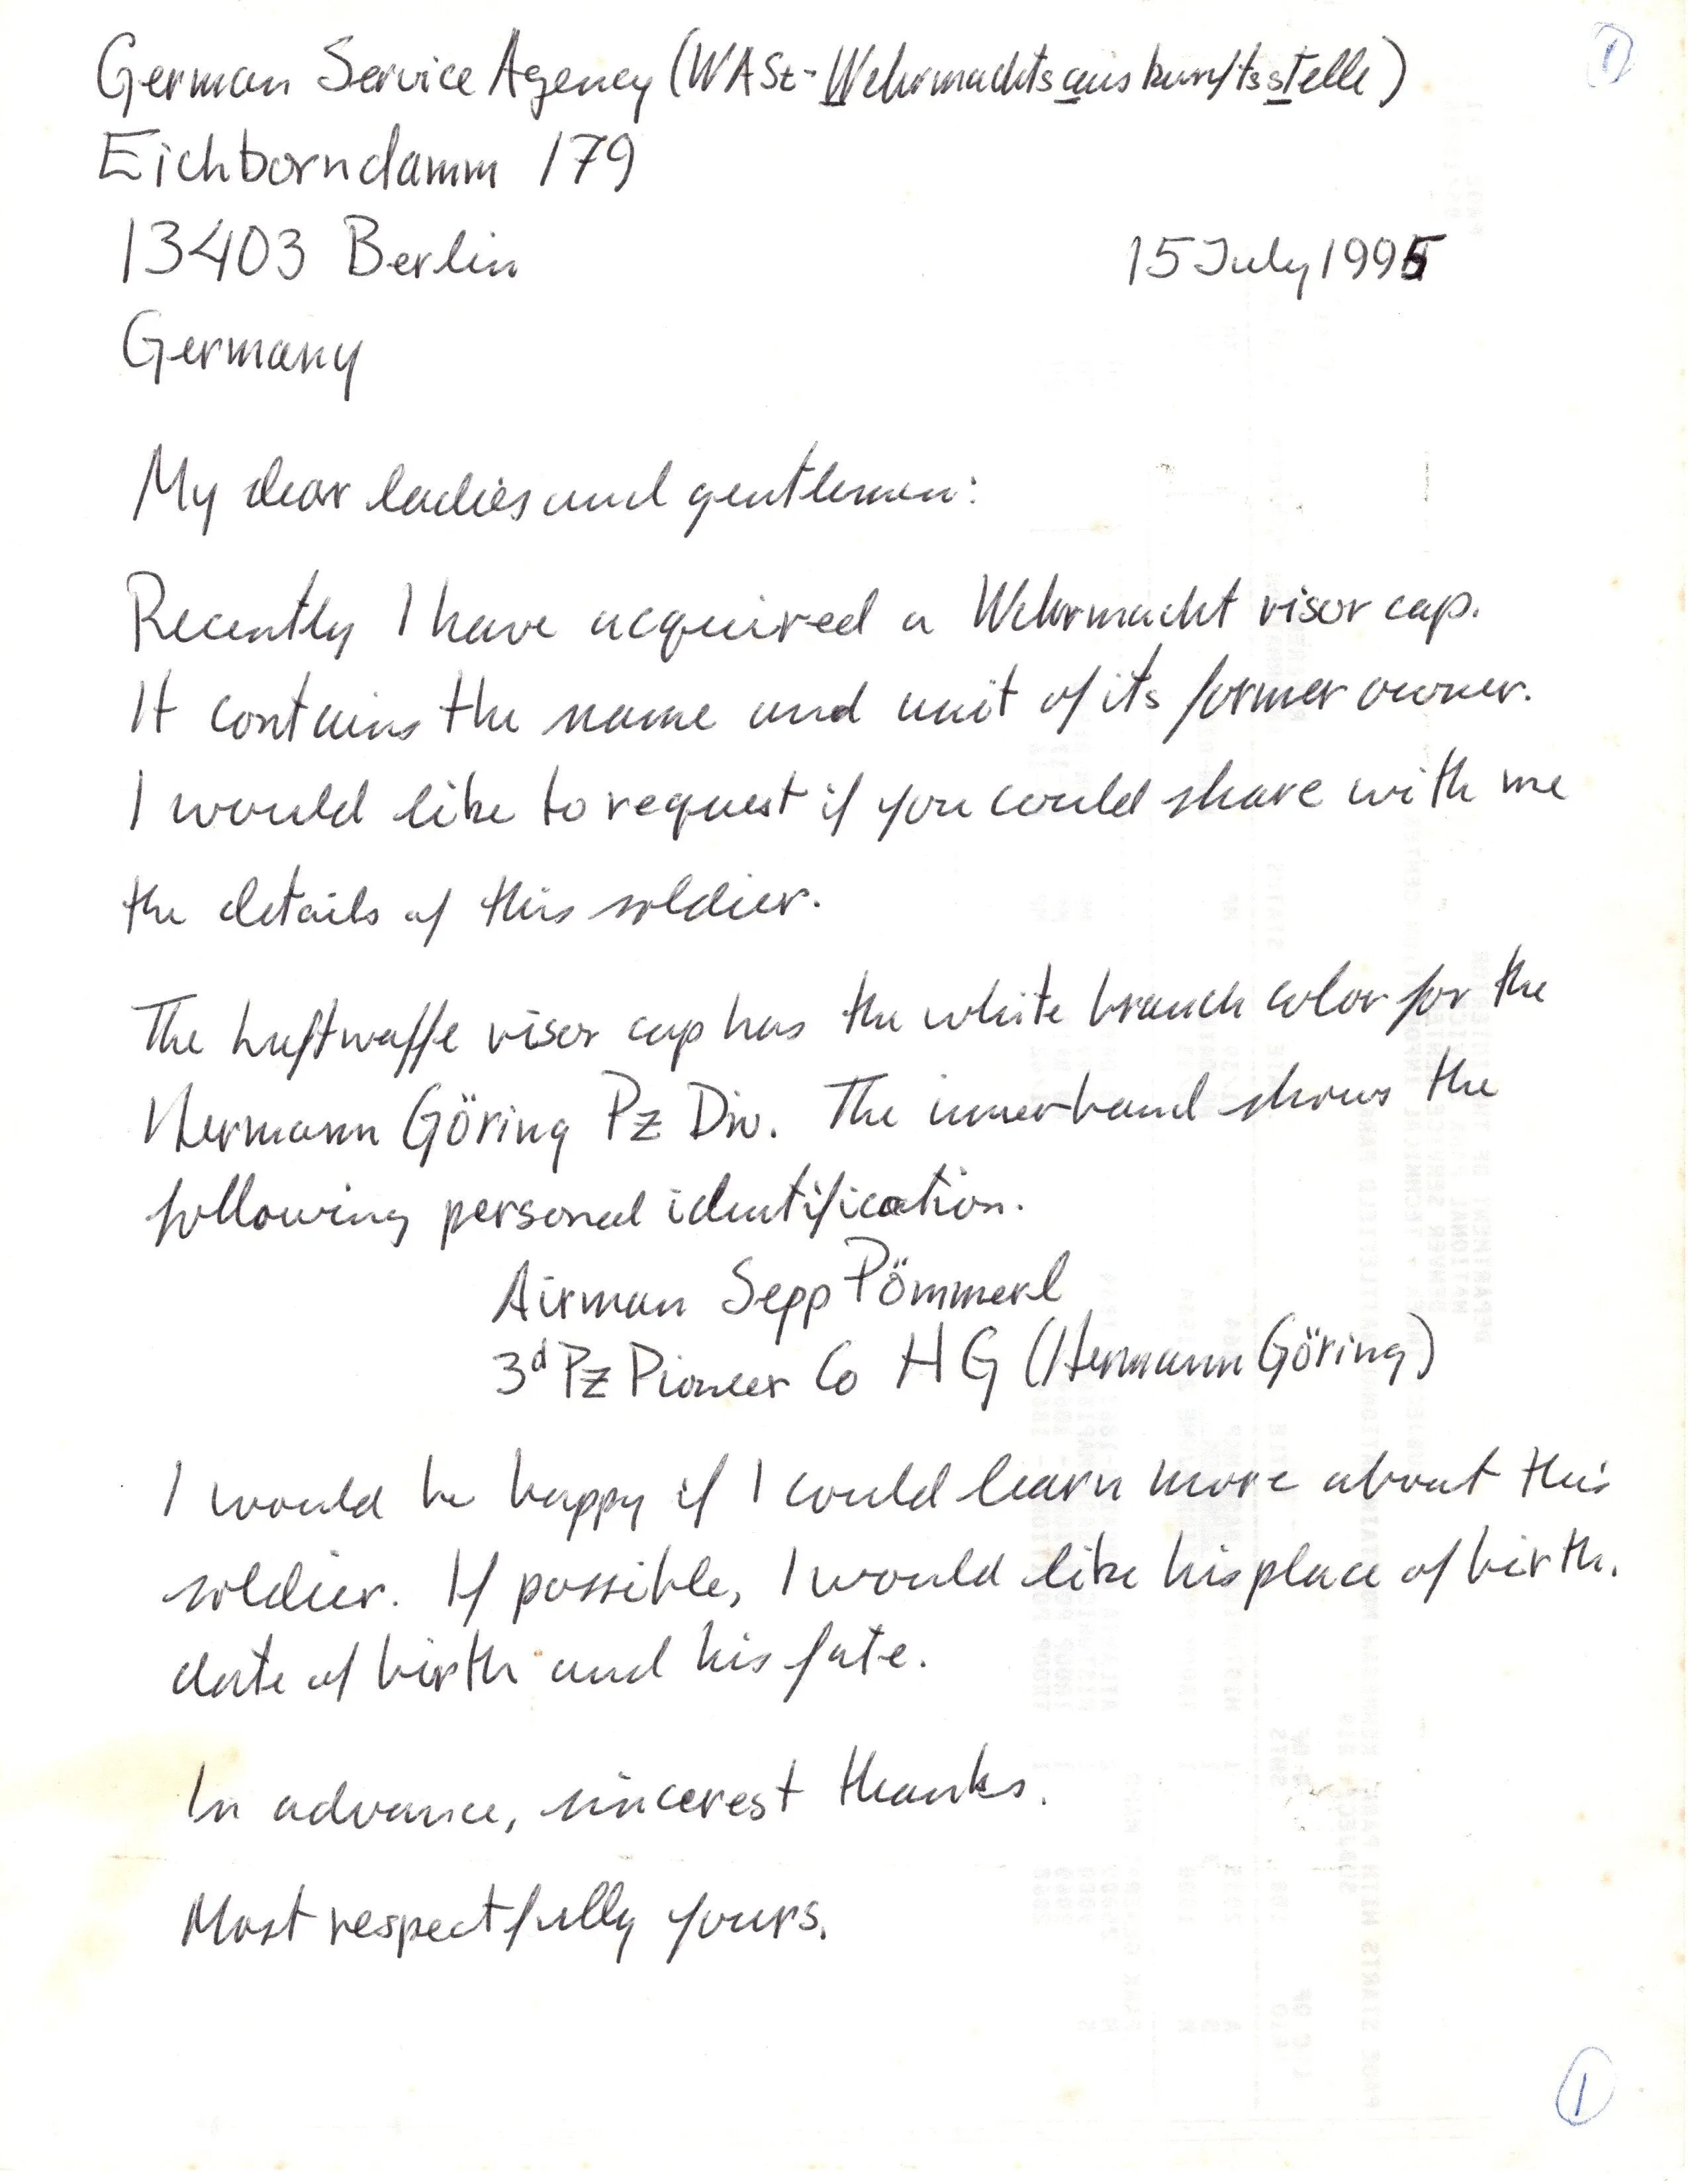 ①
German Service Agency (WASt-Wehrmachtsauskunftsstelle)
Eichborndamm 179
13403 Berlin
15 July 1995
Germany
My dear ladies and gentlemen:
Recently I have acquired a Wehrmacht visor cap.
It contains the name and unit of its former owner.
I would like to request if you could share with me
the details of this soldier.
The Luftwaffe visor cap has the white branch color for the
Hermann Göring Pz Div. The innerband shows the
following personal identification.
Airman Sepp Pömmerl
3d Pz Pioneer Co HG (Hermann Göring)
I would be happy if I could learn more about this
soldier. If possible, I would like his place of birth,
date of birth and his fate.
In advance, sincerest thanks.
Most respectfully yours,
①